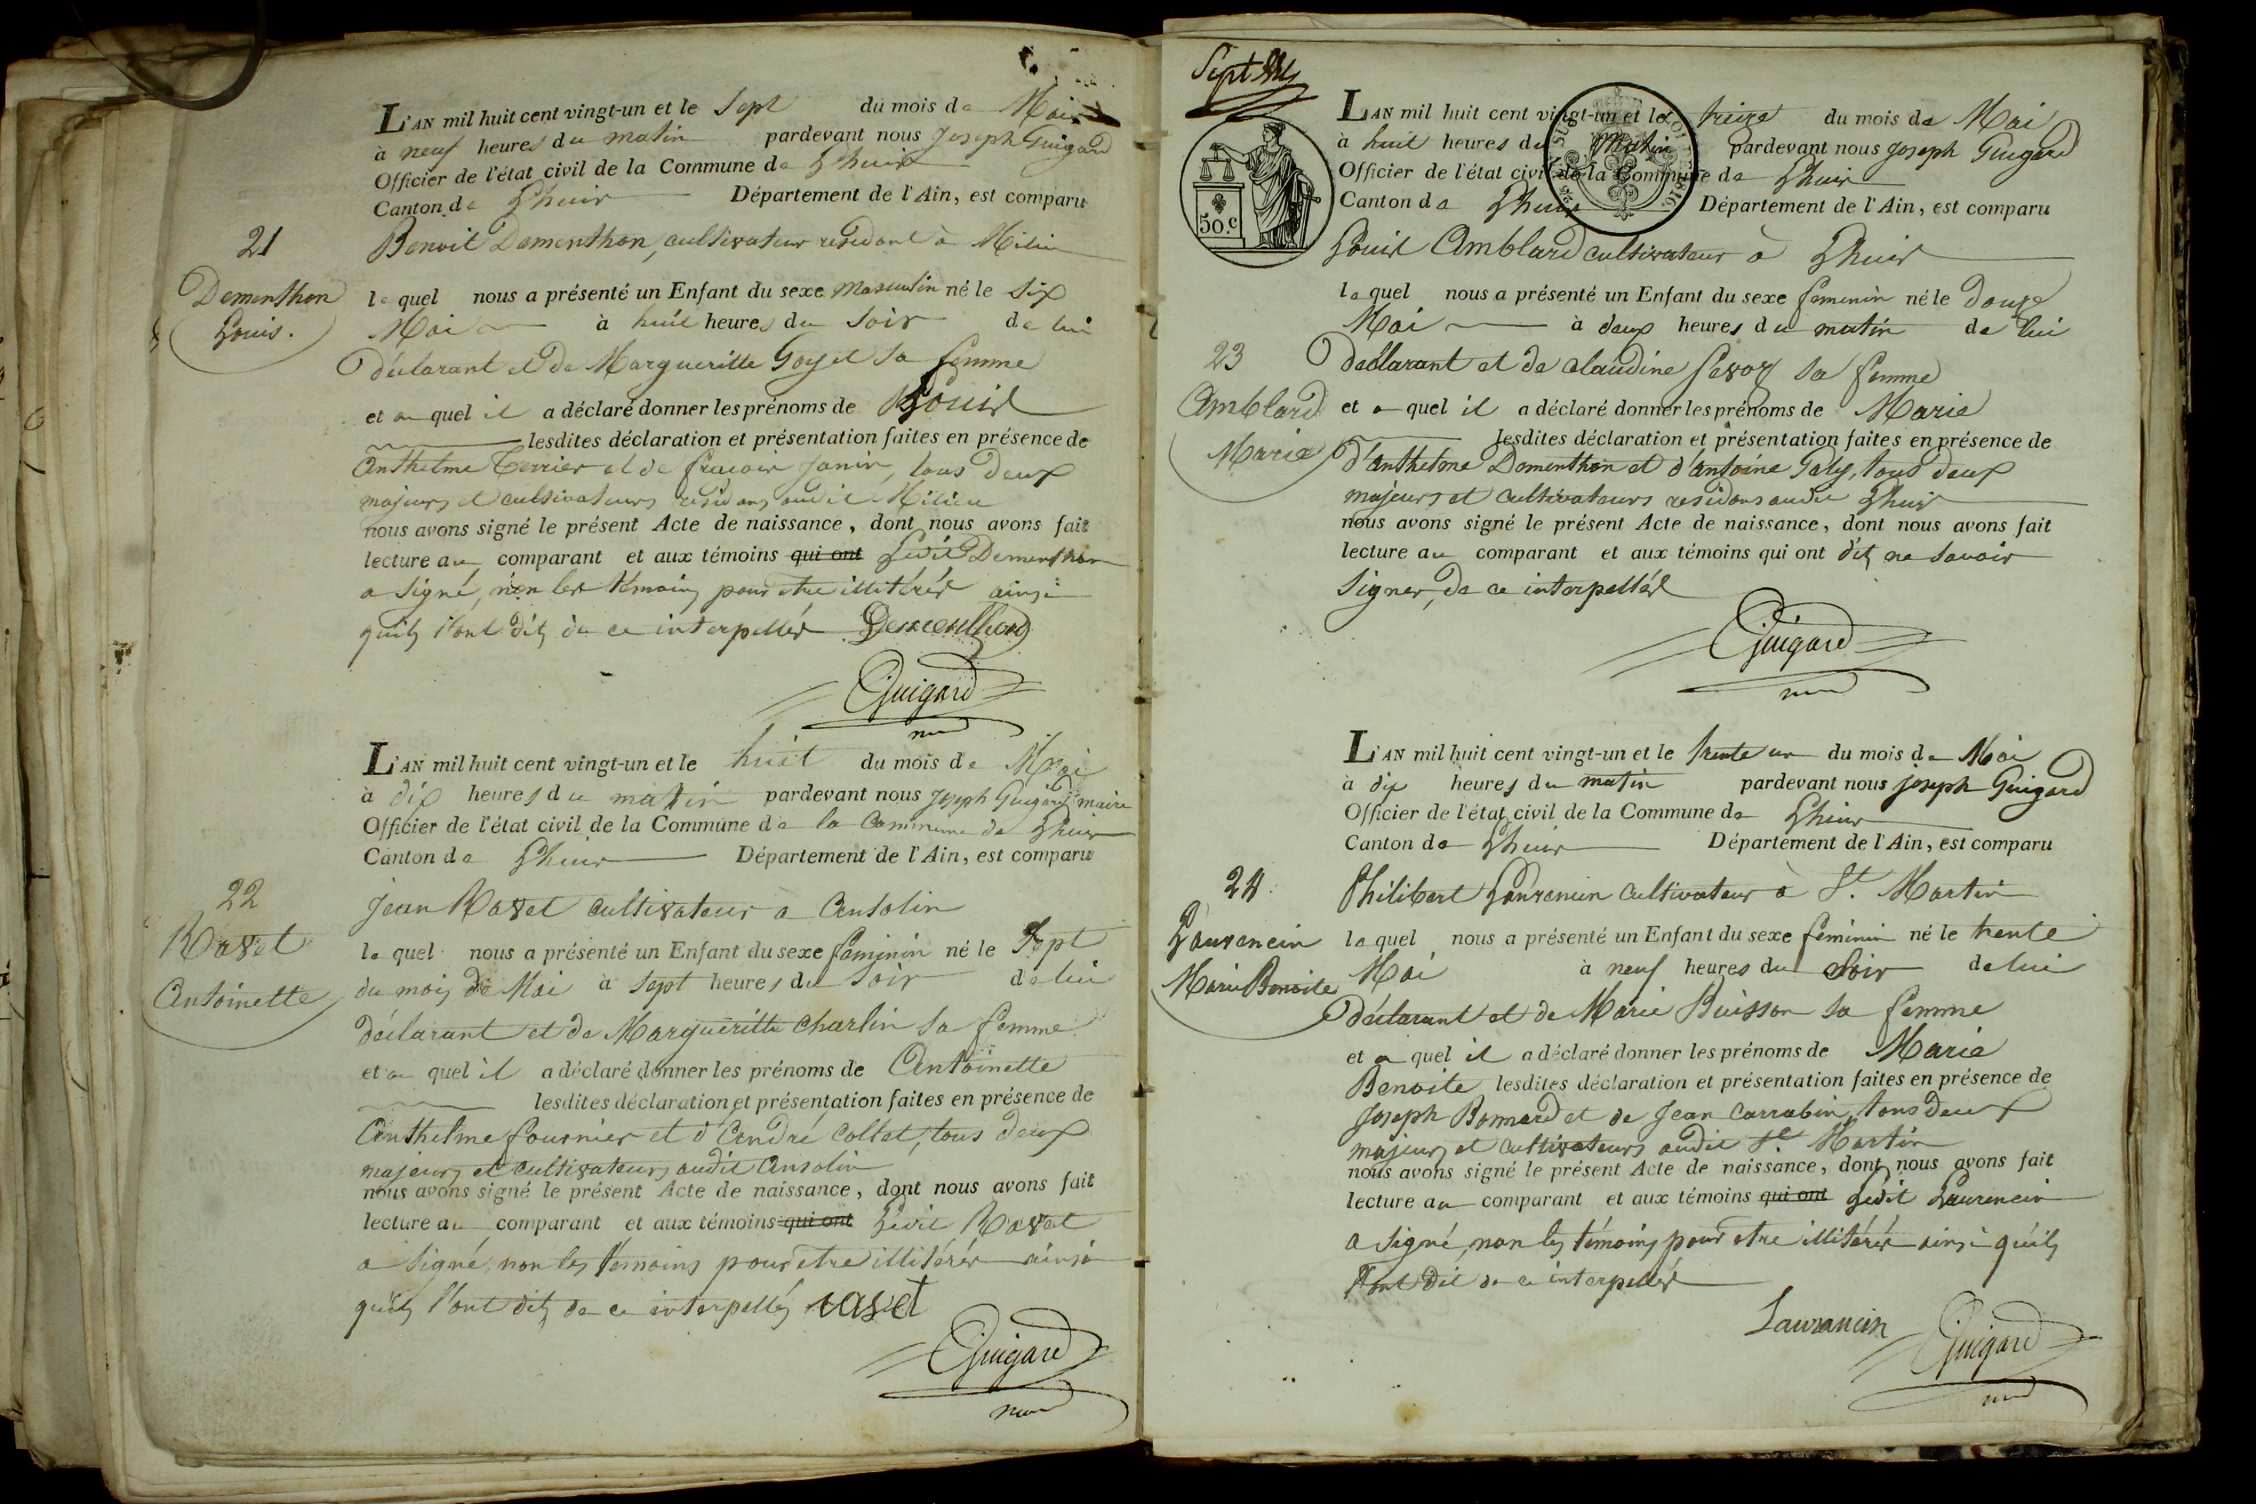 L'AN mil huit cent vingt-un et le Sept du mois de Mai
à neuf heures du matin pardevant nous Joseph Guigard
Officier de l'état civil de la Commune de Lhuis
Canton de Lhuis Département de l'Ain, est comparu
21
Benoit Dementhon, cultivateur residant à Milieu
Dementhon
Louis.
le quel nous a présenté un Enfant du sexe masculin né le Six
Mai à huit heures du Soir de lui
déclarant et de Margueritte Goyet sa femme
et au quel il a déclaré donner les prénoms de Louis
lesdites déclaration et présentation faites en présence de
Anthelme Terrier et de françois Janin, tous deux
majeurs et cultivateurs residans audit Milieu
nous avons signé le présent Acte de naissance, dont nous avons fait
lecture au comparant et aux témoins qui ont Ledit Dementhon
a signé, non les témoins pour etre illitérés ainsi
quils l'ont dits de ce interpellés Dementhon
Guigard
L'AN mil huit cent vingt-un et le huit du mois de Mai
à dix heures du matin pardevant nous Joseph Guigard maire
Officier de l'état civil de la Commune de la Commune de Lhuis
Canton de Lhuis Département de l'Ain, est comparu
22
Ravet
Antoinette
Jean Ravet cultivateur a Ansolin
le quel nous a présenté un Enfant du sexe feminin né le Sept
du mois de Mai à Sept heures du Soir de lui
déclarant et de Margueritte Charlin sa femme
et au quel il a déclaré donner les prénoms de Antoinette
lesdites déclaration et présentation faites en présence de
Anthelme fournier et d'André Collet, tous deux
majeurs et cultivateurs audit Ansolin
nous avons signé le présent Acte de naissance, dont nous avons fait
lecture au comparant et aux témoins qui ont Ledit Ravet
a signé, non les témoins pour etre illitérés ainsi
quils l'ont dits de ce interpellés ravet
Guigard
Sept
50.c
L'AN mil huit cent vingt-un et le treize du mois de Mai
à huit heures du Matin pardevant nous Joseph Guigard
Officier de l'état civil de la Commune de Lhuis
Canton de Lhuis Département de l'Ain, est comparu
Louis Amblard cultivateur à Lhuis
le quel nous a présenté un Enfant du sexe feminin né le douze
Mai à deux heures du matin de lui
23
Amblard
Marie
déclarant et de Claudine Savoy sa femme
et au quel il a déclaré donner les prénoms de Marie
lesdites déclaration et présentation faites en présence de
d'Anthelme Dementhon et d'Antoine Galy, tous deux
majeurs et cultivateurs residans audit Lhuis
nous avons signé le présent Acte de naissance, dont nous avons fait
lecture au comparant et aux témoins qui ont dits ne savoir
signer, de ce interpellés
Guigard
L'AN mil huit cent vingt-un et le trente un du mois de Mai
à dix heures du matin pardevant nous Joseph Guigard
Officier de l'état civil de la Commune de Lhuis
Canton de Lhuis Département de l'Ain, est comparu
24
Laurencin
Marie Benoite
Philibert Laurencin cultivateur à St. Martin
le quel nous a présenté un Enfant du sexe féminin né le trente
Mai à neuf heures du Soir de lui
déclarant et de Marie Buisson sa femme
et au quel il a déclaré donner les prénoms de Marie
Benoite lesdites déclaration et présentation faites en présence de
Joseph Bonnard et de Jean Carrabin, tous deux
majeurs et cultivateurs audit St. Martin
nous avons signé le présent Acte de naissance, dont nous avons fait
lecture au comparant et aux témoins qui ont Ledit Laurencin
a signé, non les témoins pour etre illitérés ainsi quils
l'ont dit de ce interpellés
Laurancin
Guigard